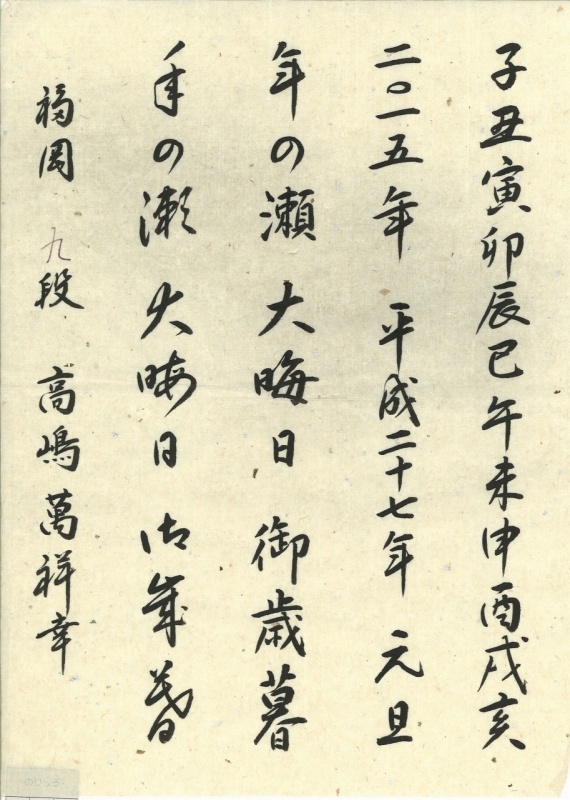 子丑寅卯辰巳午未申酉戌亥
二〇一五年 平成二十七年 元旦
年の瀬 大晦日 御歳暮
年の瀬 大晦日 御歳暮
福岡 九段 高嶋萬祥幸